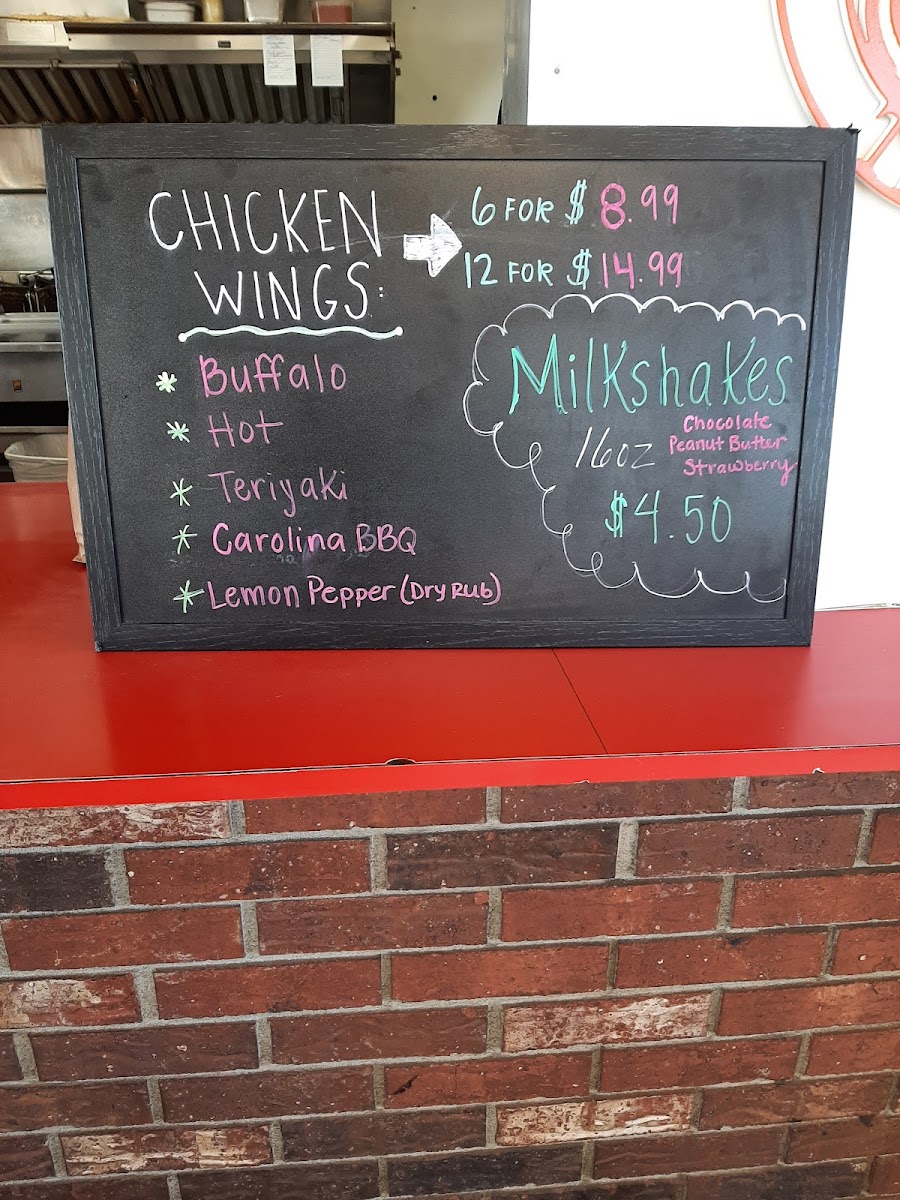 CHICKEN
WINGS:
6 FOR $8.99
12 FOR $14.99
* Buffalo
* Hot
* Teriyaki
* Carolina BBQ
* Lemon Pepper (Dry Rub)
Milkshakes
16oz
Chocolate
Peanut Butter
Strawberry
$4.50